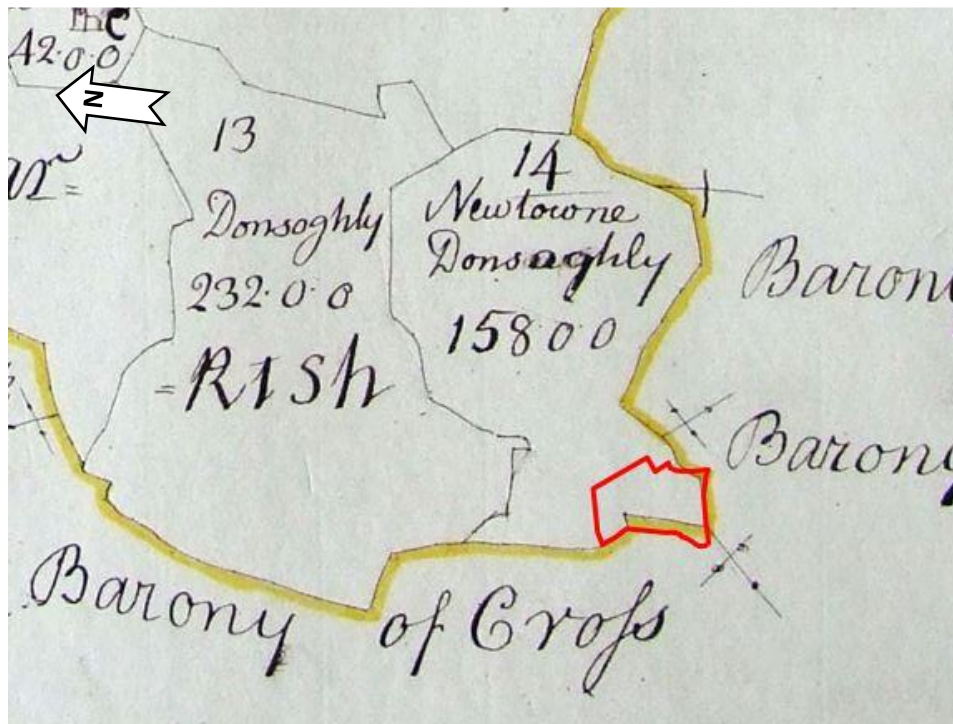 42·0·0
N
13
Donsoghly
232·0·0
=RISh
14
Newtowne
Donsaghly
158 0 0
Baron
Barony
Barony of Croſs